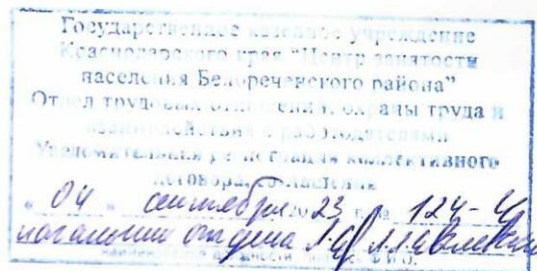 Государственное казенное учреждение
Краснодарского края "Центр занятости
населения Белореченского района"
Отдел трудовых отношений, охраны труда и
взаимодействия с работодателями
Уведомительная регистрация коллективного
договора, соглашения
"04" сентября 2023 г. № 124-
начальник отдела